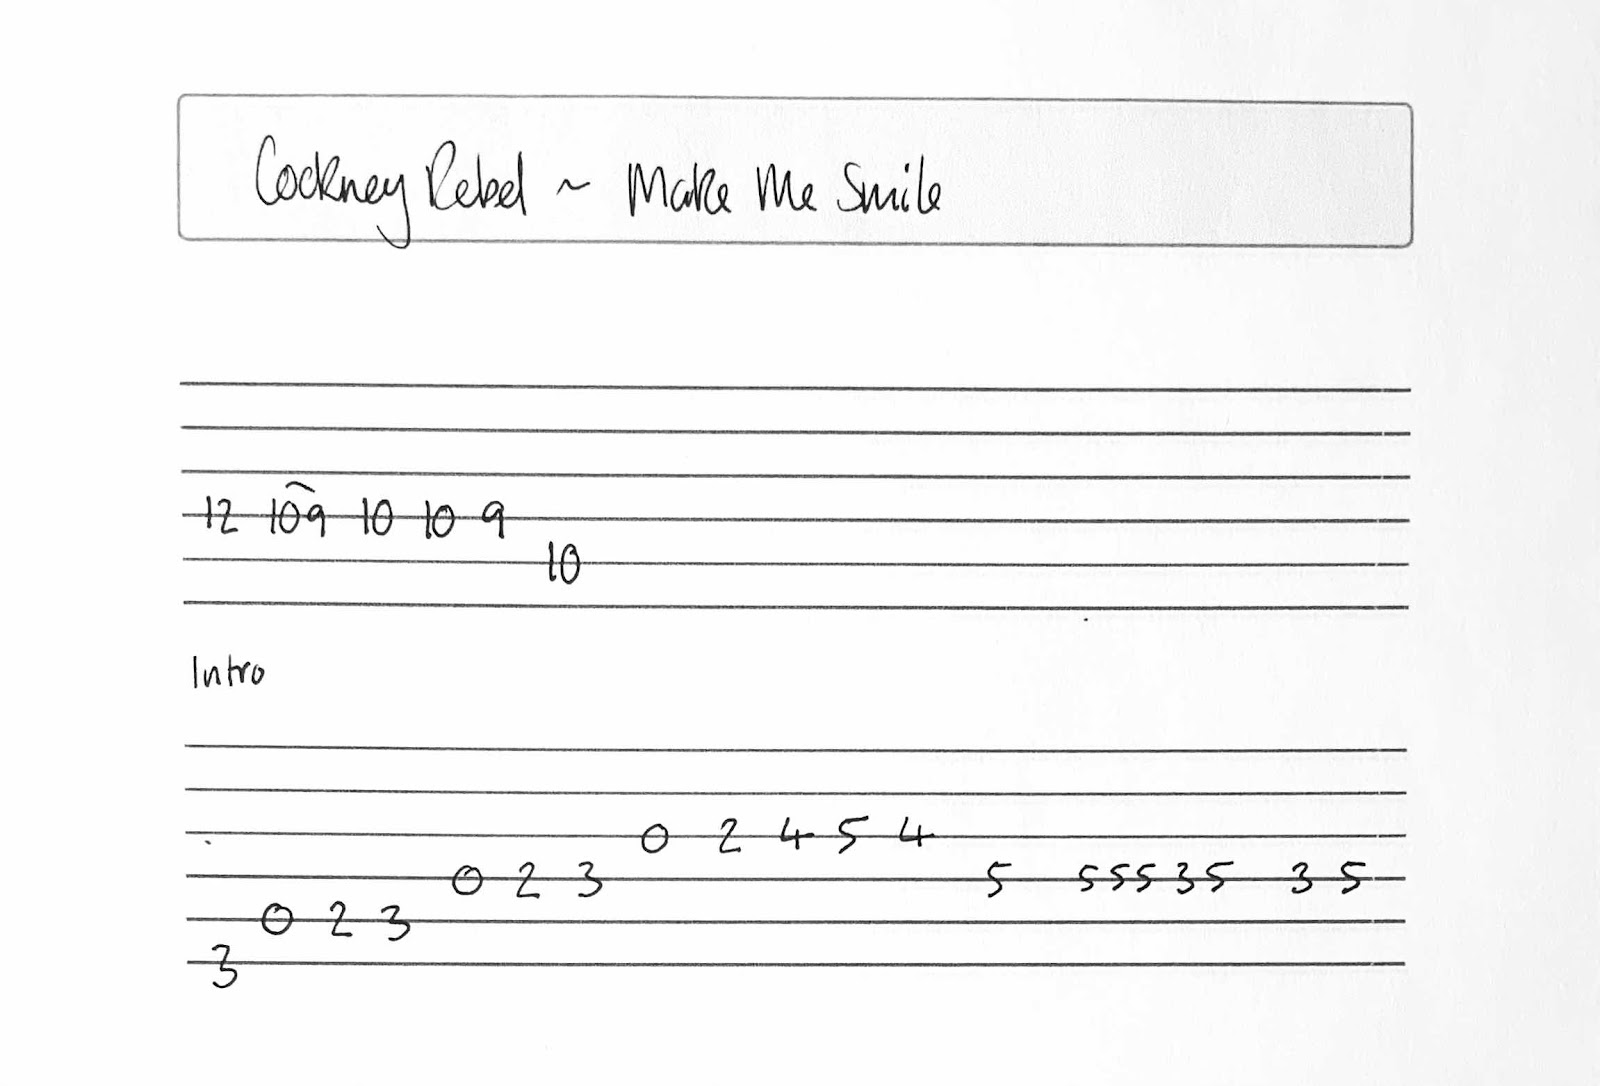 Cockney Rebel ~ Make Me Smile
12 10 9 10 10 9
10
Intro
0 2 4 5 4
0 2 3 5 5 5 5 3 5 3 5
0 2 3
3